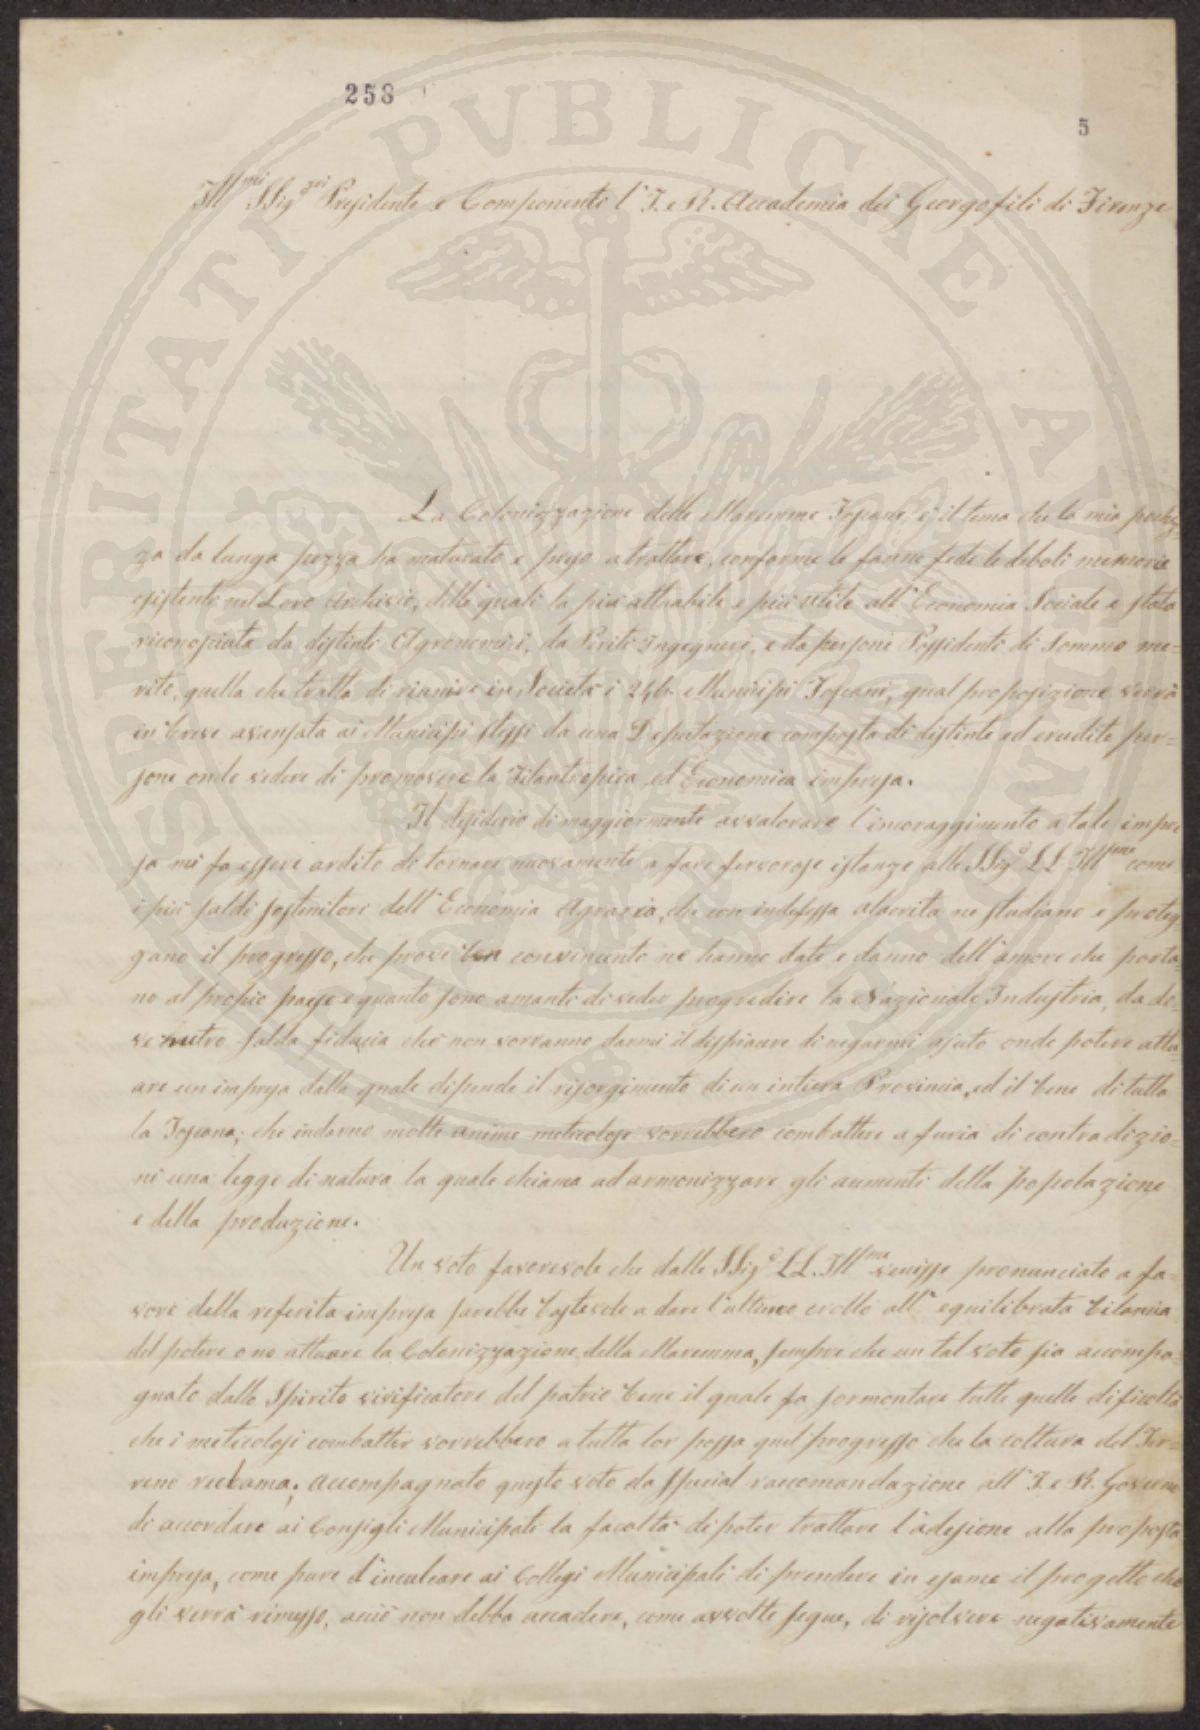 258
5
Ill.mi SSig.ori Presidente e Componenti l'I. e R. Accademia dei Georgofili di Firenze
La Colonizzazione delle Maremme Toscane, è il tema che la mia pochez-
za da lunga pezza ha maturato e preso a trattare, conforme le fanno fede le deboli memorie
esistenti nel Loro Archivio, delle quali la più attuabile e più utile all'Economia Sociale e stata
riconosciuta da distinti Agronomici, da Periti Ingegneri, e da persone Possidenti di Sommo me=
rito, quella che tratta di riunire in Società i 246 Municipi Toscani, qual proposizione verrà
in breve avansata ai Municipi stessi da una Deputazione composta di distinte ed erudite per=
sone onde vedere di promovere la Filantropica ed Economica impresa.
Il desiderio di maggiormente avvalorare l'incoraggimento a tale impre
sa mi fa essere ardito di tornare nuovamente a fare fervorose istanze alle SSig.e LL. Ill.me come
i più saldi sostenitori dell'Economia Agraria, che con indefessa alacrita ne studiano e proteg
gano il progresso, che prove ben convincente ne hanno date e danno dell'amore che porta=
no al propio paese e quanto sono amanti di veder progredire la Nazionale Industria, da do=
ve nutro salda fiducia che non vorranno darmi il dispiacere di negarmi ajuto onde potere attu
are un impresa dalla quale dipende il risorgimento di un intiera Provincia, ed il bene di tutta
la Toscana; che indarno molte anime meticolose vorrebbero combattere a furia di contradizio=
ni una legge di natura la quale chiama ad armonizzare gli aumenti della popolazione
e della produzione.
Un voto favorevole che dalle SSig.e LL. Ill.me venisse pronunciato a fa=
vore della referita impresa sarebbe bastevole a dare l'ultimo crollo all'equilibrata bilancia
del potere o no attuare la Colonizzazione della Maremma, sempre che un tal voto sia accompa=
gnato dallo Spirito vivificatore del patrio bene il quale fa sormontare tutte quelle dificoltà
che i meticolosi combatter vorrebbero a tutta lor possa quel progresso che la coltura del Ter=
reno reclama; accompagnato questo voto da special raccomandazione all'I. e R. Governo
di accordare ai Consigli Municipali la facoltà di poter trattare l'adesione alla proposta
impresa, come pure d'inculcare ai Collegi Municipali di prendere in esame il progetto che
gli verrà rimesso, acciò non debba accadere, come avvolte segue, di risolvere negativamente
SPERITATI PVBLICAE AV